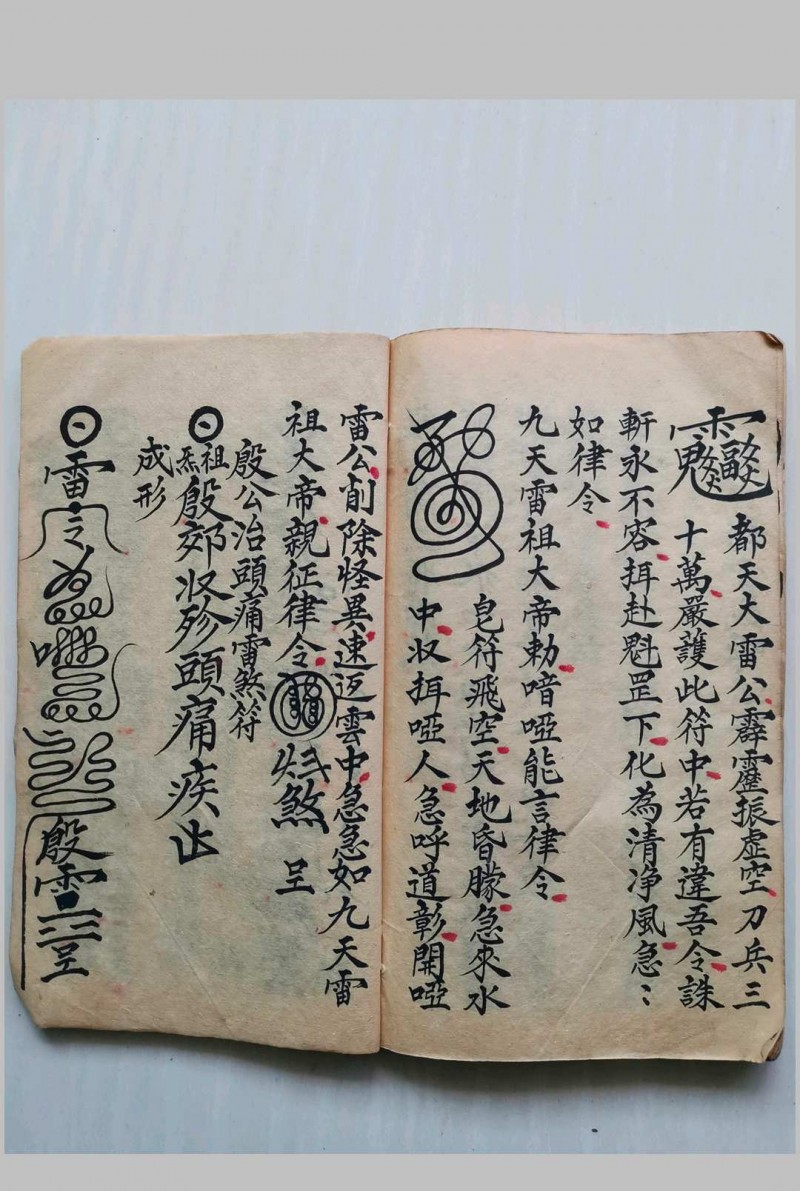 都天大雷公霹靂振虛空刀兵三
十萬嚴護此符中若有違吾令誅
軒永不容挕赴魁罡下化為清净風急〻
如律令
九天雷祖大帝勅喑啞能言律令
皂符飛空天地昏朦急來水
中収挕啞人急呼道彰開啞
雷公削除怪異速迊雲中急急如九天雷
祖大帝親征律令
煞
呈
殷公治頭痛雷煞符
祖炁殷郊収殄頭痛疾止
成形
雷令
殷雷
呈